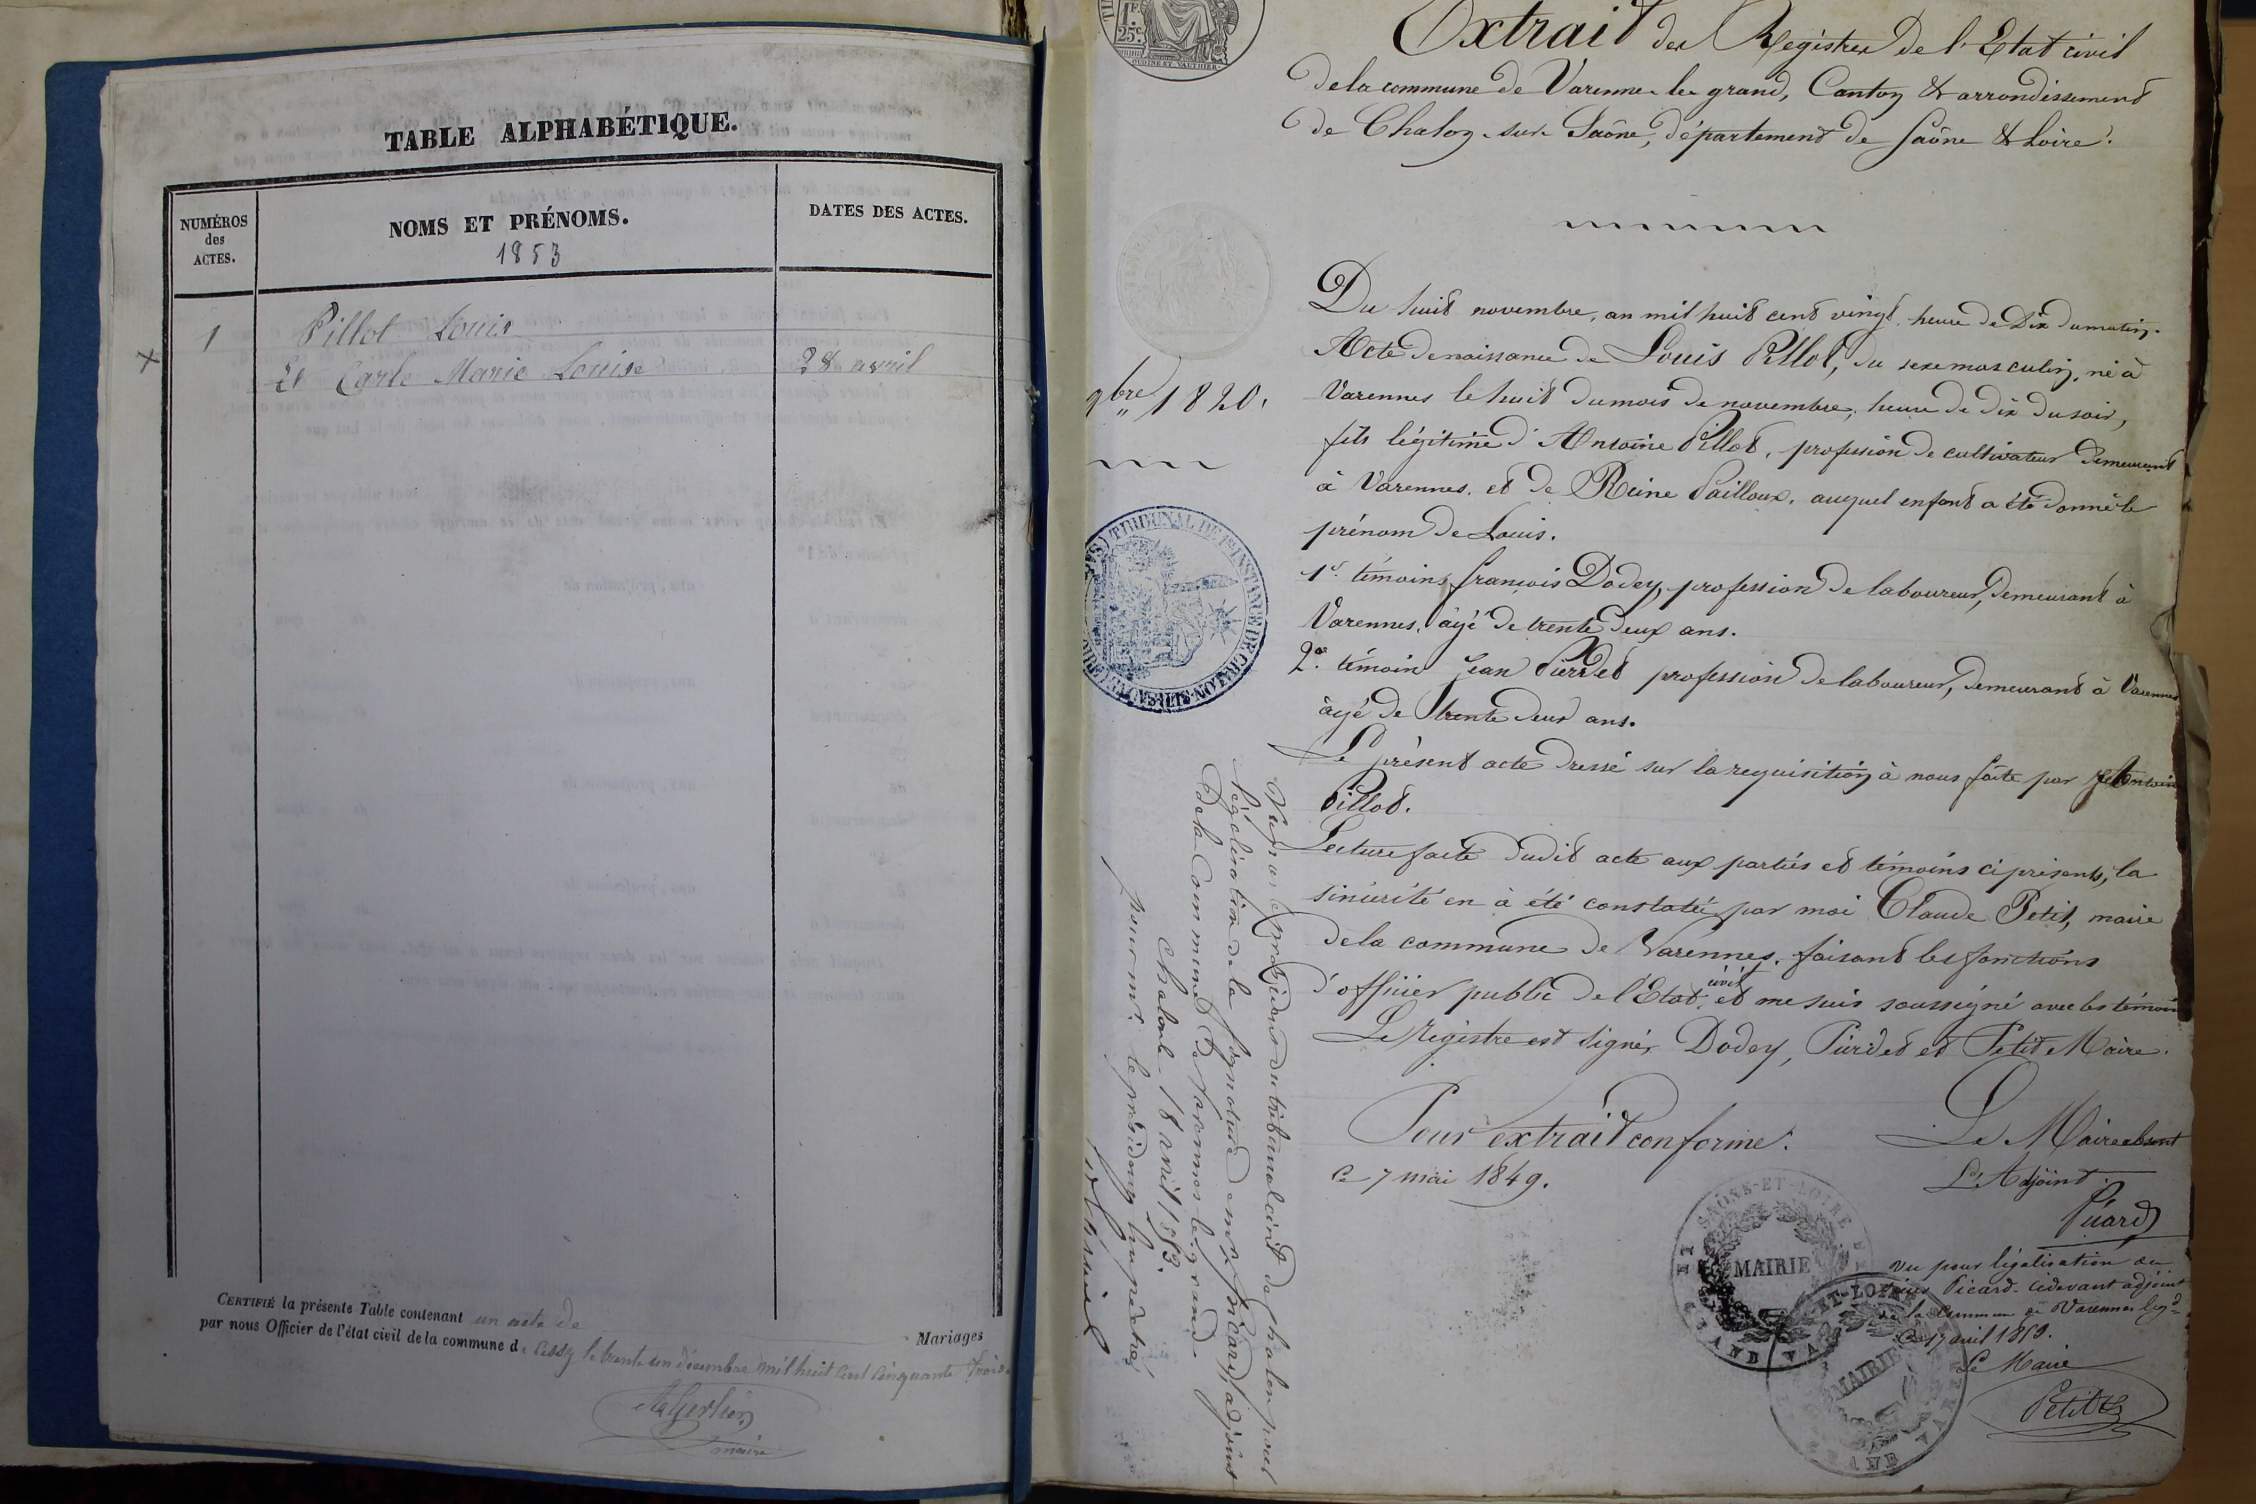 TABLE ALPHABÉTIQUE.
NUMÉROS des ACTES.
NOMS ET PRÉNOMS.
1853
DATES DES ACTES.
1 Pillot Louis
Et Carle Marie Louise 28 avril
CERTIFIÉ la présente Table contenant un acte de Mariages
par nous Officier de l'état civil de la commune de Cessy le trente un décembre mil huit cent cinquante trois
maire
1F.
25c.
Extrait des Registres de l'Etat civil
de la commune de Varennes le grand, Canton & arrondissement
de Chalon-sur-Saône, département de Saône & Loire.
9bre 1820.
Du huit novembre, an mil huit cent vingt, heure de Dix du matin.
Acte de naissance de Louis Pillot, du sexe masculin, né à
Varennes le huit du mois de novembre, heure de dix du soir,
fils légitime d'Antoine Pillot, profession de cultivateur demeurant
à Varennes, et de Reine Pailloux, auquel enfant a été donné le
prénom de Louis.
1er témoins françois Dodey, profession de laboureur, demeurant à
Varennes, âgé de trente deux ans.
2e témoin Jean Pierdet profession de laboureur, demeurant à Varennes
âgé de trente deux ans.
Le présent acte dressé sur la requisition à nous faite par Antoine
Pillot.
Lecture faite dudit acte aux parties et témoins ci présents, la
sincérité en à été constatée par moi Claude Petit, maire
de la commune de Varennes, faisant les fonctions
d'officier public de l'Etat civil et me suis soussigné avec les témoins
Le Registre est signé, Dodey, Pierdet et Petit Maire.
Pour extrait conforme.
Ce 7 mai 1849.
Le Maire absent
L'Adjoint.
Picard
vu pour légalisation du
sieur Picard cidevant adjoint
de la Commune de Varennes le gd
Ce 17 avril 1853.
Le Maire
Petit
SAONE-ET-LOIRE
MAIRIE
MAIRIE
TRIBUNAL DE 1re INSTANCE DE CHALON-S-SAONE
Vu par le président du tribunal civil de Chalon pour
légalisation de la signature de Mr Picard, adjoint
de la Commune de Varennes le grand.
Chalon le 18 avril 1853.
pour mr. le président empêché,